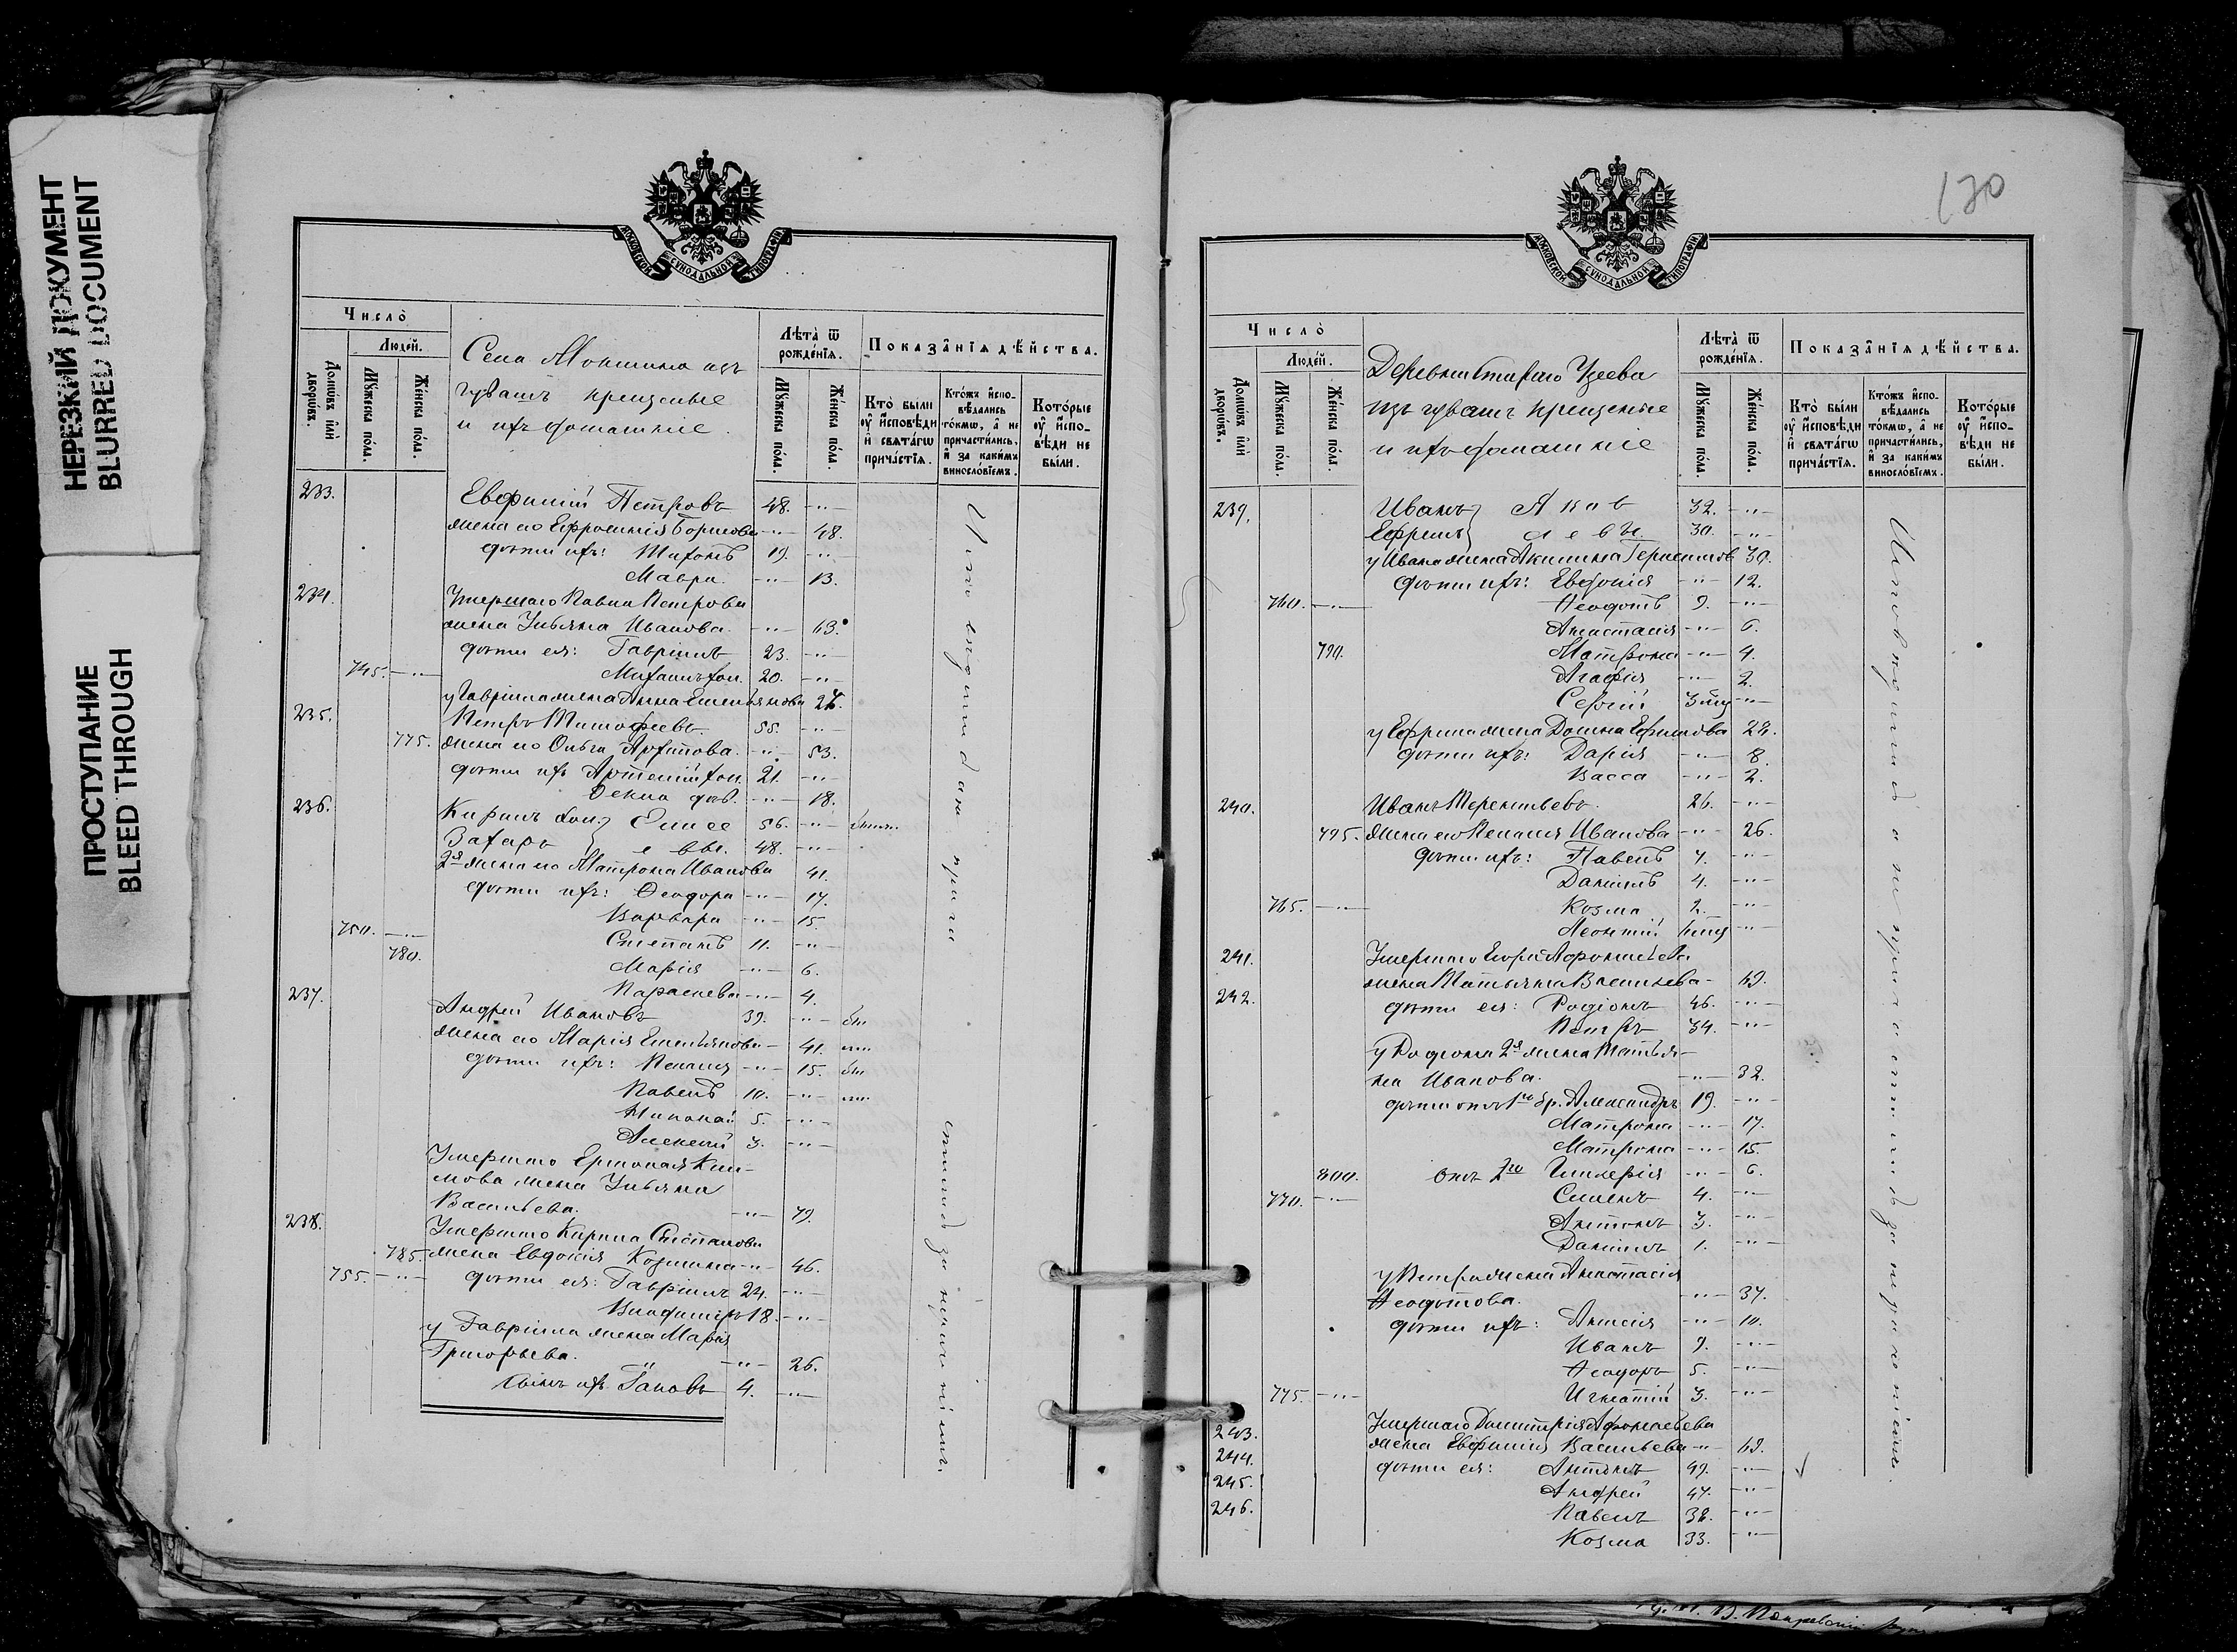 НЕРЕЗКИЙ ДОКУМЕНТ
BLURRED DOCUMENT
ПРОСТУПАНИЕ
BLEED THROUGH
МОСКОВСКОЙ СѴНОДАЛЬНОЙ ТИПОГРАФІИ
Число̀
Людей.
Домѡвъ и҆лѝ дворѡвъ.
Мꙋ́жеска по́ла.
Же́нска по́ла.
Села Мокшина изъ
чувашъ крещеные
и ихъ домашніе.
Лѣта̀ ѿ рожде́нїѧ.
Мꙋ́жеска по́ла.
Же́нска по́ла.
Показа̑нїѧ дѣ́йства.
Кто̀ бы́ли оу҆ и҆сповѣ́ди и҆ свѧта́гѡ прича́стїѧ.
Кто́жъ и҆спо-вѣ́дались то́кмѡ, а҆ не причасти́лись, и҆ за каки́мъ винослові́емъ.
Кото́рые оу҆ и҆спо-вѣ́ди не бы́ли.
233. Евфимій Петровъ 48. -"-
жена его Ефросинія Борисова -"- 48.
дѣти ихъ: Тихонъ 19. -"-
Мавра. -"- 13.
234. Умершаго Павла Петрова
жена Ульяна Иванова. -"- 63.
дѣти ея: Гавріилъ 23. -"-
745. -"- Михаилъ хол. 20. -"-
у Гавріила жена Анна Емельянова 24.
235. Петръ Тимофеевъ. 55. -"-
775. жена его Ольга Архипова. -"- 53.
дѣти ихъ Артемій хол. 21. -"-
Ѳекла дѣв. -"- 18.
236. Кирилъ хол. } Елисе 56. -"-
Захаръ } евы. 48. -"-
2я жена его Матрона Иванова 41.
дѣти ихъ: Ѳеодора -"- 17.
Варвара -"- 15.
750. -"- Степанъ 11. -"-
780. Марія -"- 6.
Параскева -"- 4.
237. Андрей Ивановъ 39. -"-
жена его Марія Емельянова - 41.
дѣти ихъ: Пелагія -"- 15.
Павелъ 10. -"-
Николай 5. -"-
Алексій 3. -"-
Умершаго Ермолая Кли-
мова жена Ульяна
Васильева. -"- 79.
238. Умершаго Кирила Степанова
785. жена Евдокія Козьмина -"- 46.
755. -"- дѣти ея: Гавріилъ 24. -"-
Владиміръ 18. -"-
у Гавріила жена Марія
Григорьева. -"- 26.
сынъ ихъ Іаковъ 4. -"-
170
МОСКОВСКОЙ СѴНОДАЛЬНОЙ ТИПОГРАФІИ
Число̀
Людей.
Домѡвъ и҆лѝ дворѡвъ.
Мꙋ́жеска по́ла.
Же́нска по́ла.
Деревни Стараго Узеева
изъ чувашъ крещеные
и ихъ домашніе
Лѣта̀ ѿ рожде́нїѧ.
Мꙋ́жеска по́ла.
Же́нска по́ла.
Показа̑нїѧ дѣ́йства.
Кто̀ бы́ли оу҆ и҆сповѣ́ди и҆ свѧта́гѡ прича́стїѧ.
Кто́жъ и҆спо-вѣ́дались то́кмѡ, а҆ не причасти́лись, и҆ за каки́мъ винослові́емъ.
Кото́рые оу҆ и҆спо-вѣ́ди не бы́ли.
239. Иванъ } Яков 32. -"-
Ефремъ } левы. 30. -"-
у Ивана жена Акилина Герасимов 30.
дѣти ихъ: Евдокія -"- 12.
760. -"- Ѳеодотъ 9. -"-
Анастасія -"- 6.
790. Матрона -"- 4.
Агафія -"- 2.
Сергій 3 мѣс -"-
у Ефрема жена Домна Ефимова 28.
дѣти ихъ: Дарія -"- 8.
Васса -"- 2.
240. Иванъ Терентьевъ. 26. -"-
795. жена его Пелагія Иванова -"- 26.
дѣти ихъ: Павелъ 7. -"-
Даніилъ 4. -"-
765. -"- Козма 2. -"-
Леонтій -"-
241. Умершаго Егора Афонасьева
жена Татьяна Васильева - 69.
242. дѣти ея: Родіонъ 46. -"-
Петръ 34. -"-
у Родіона 2я жена Татья-
на Иванова. -"- 32.
дѣти отъ 1го бр. Александръ 19. -"-
Матрона -"- 17.
Матрона -"- 15.
800. отъ 2го Гликерія -"- 6.
770. -"- Симонъ 4. -"-
Антонъ 3. -"-
Даніилъ 1. -"-
у Петра жена Анастасія
Ѳеодотова. -"- 37.
дѣти ихъ: Анисія -"- 10.
Иванъ 9. -"-
Ѳеодоръ 5. -"-
775. -"- Игнатій 3. -"-
243. Умершаго Димитрія Афонасьева
244. жена Евфимія Васильева -"- 69.
245. дѣти ея: Антонъ 49. -"-
246. Андрей 47. -"-
Павелъ 38. -"-
Козма 33. -"-